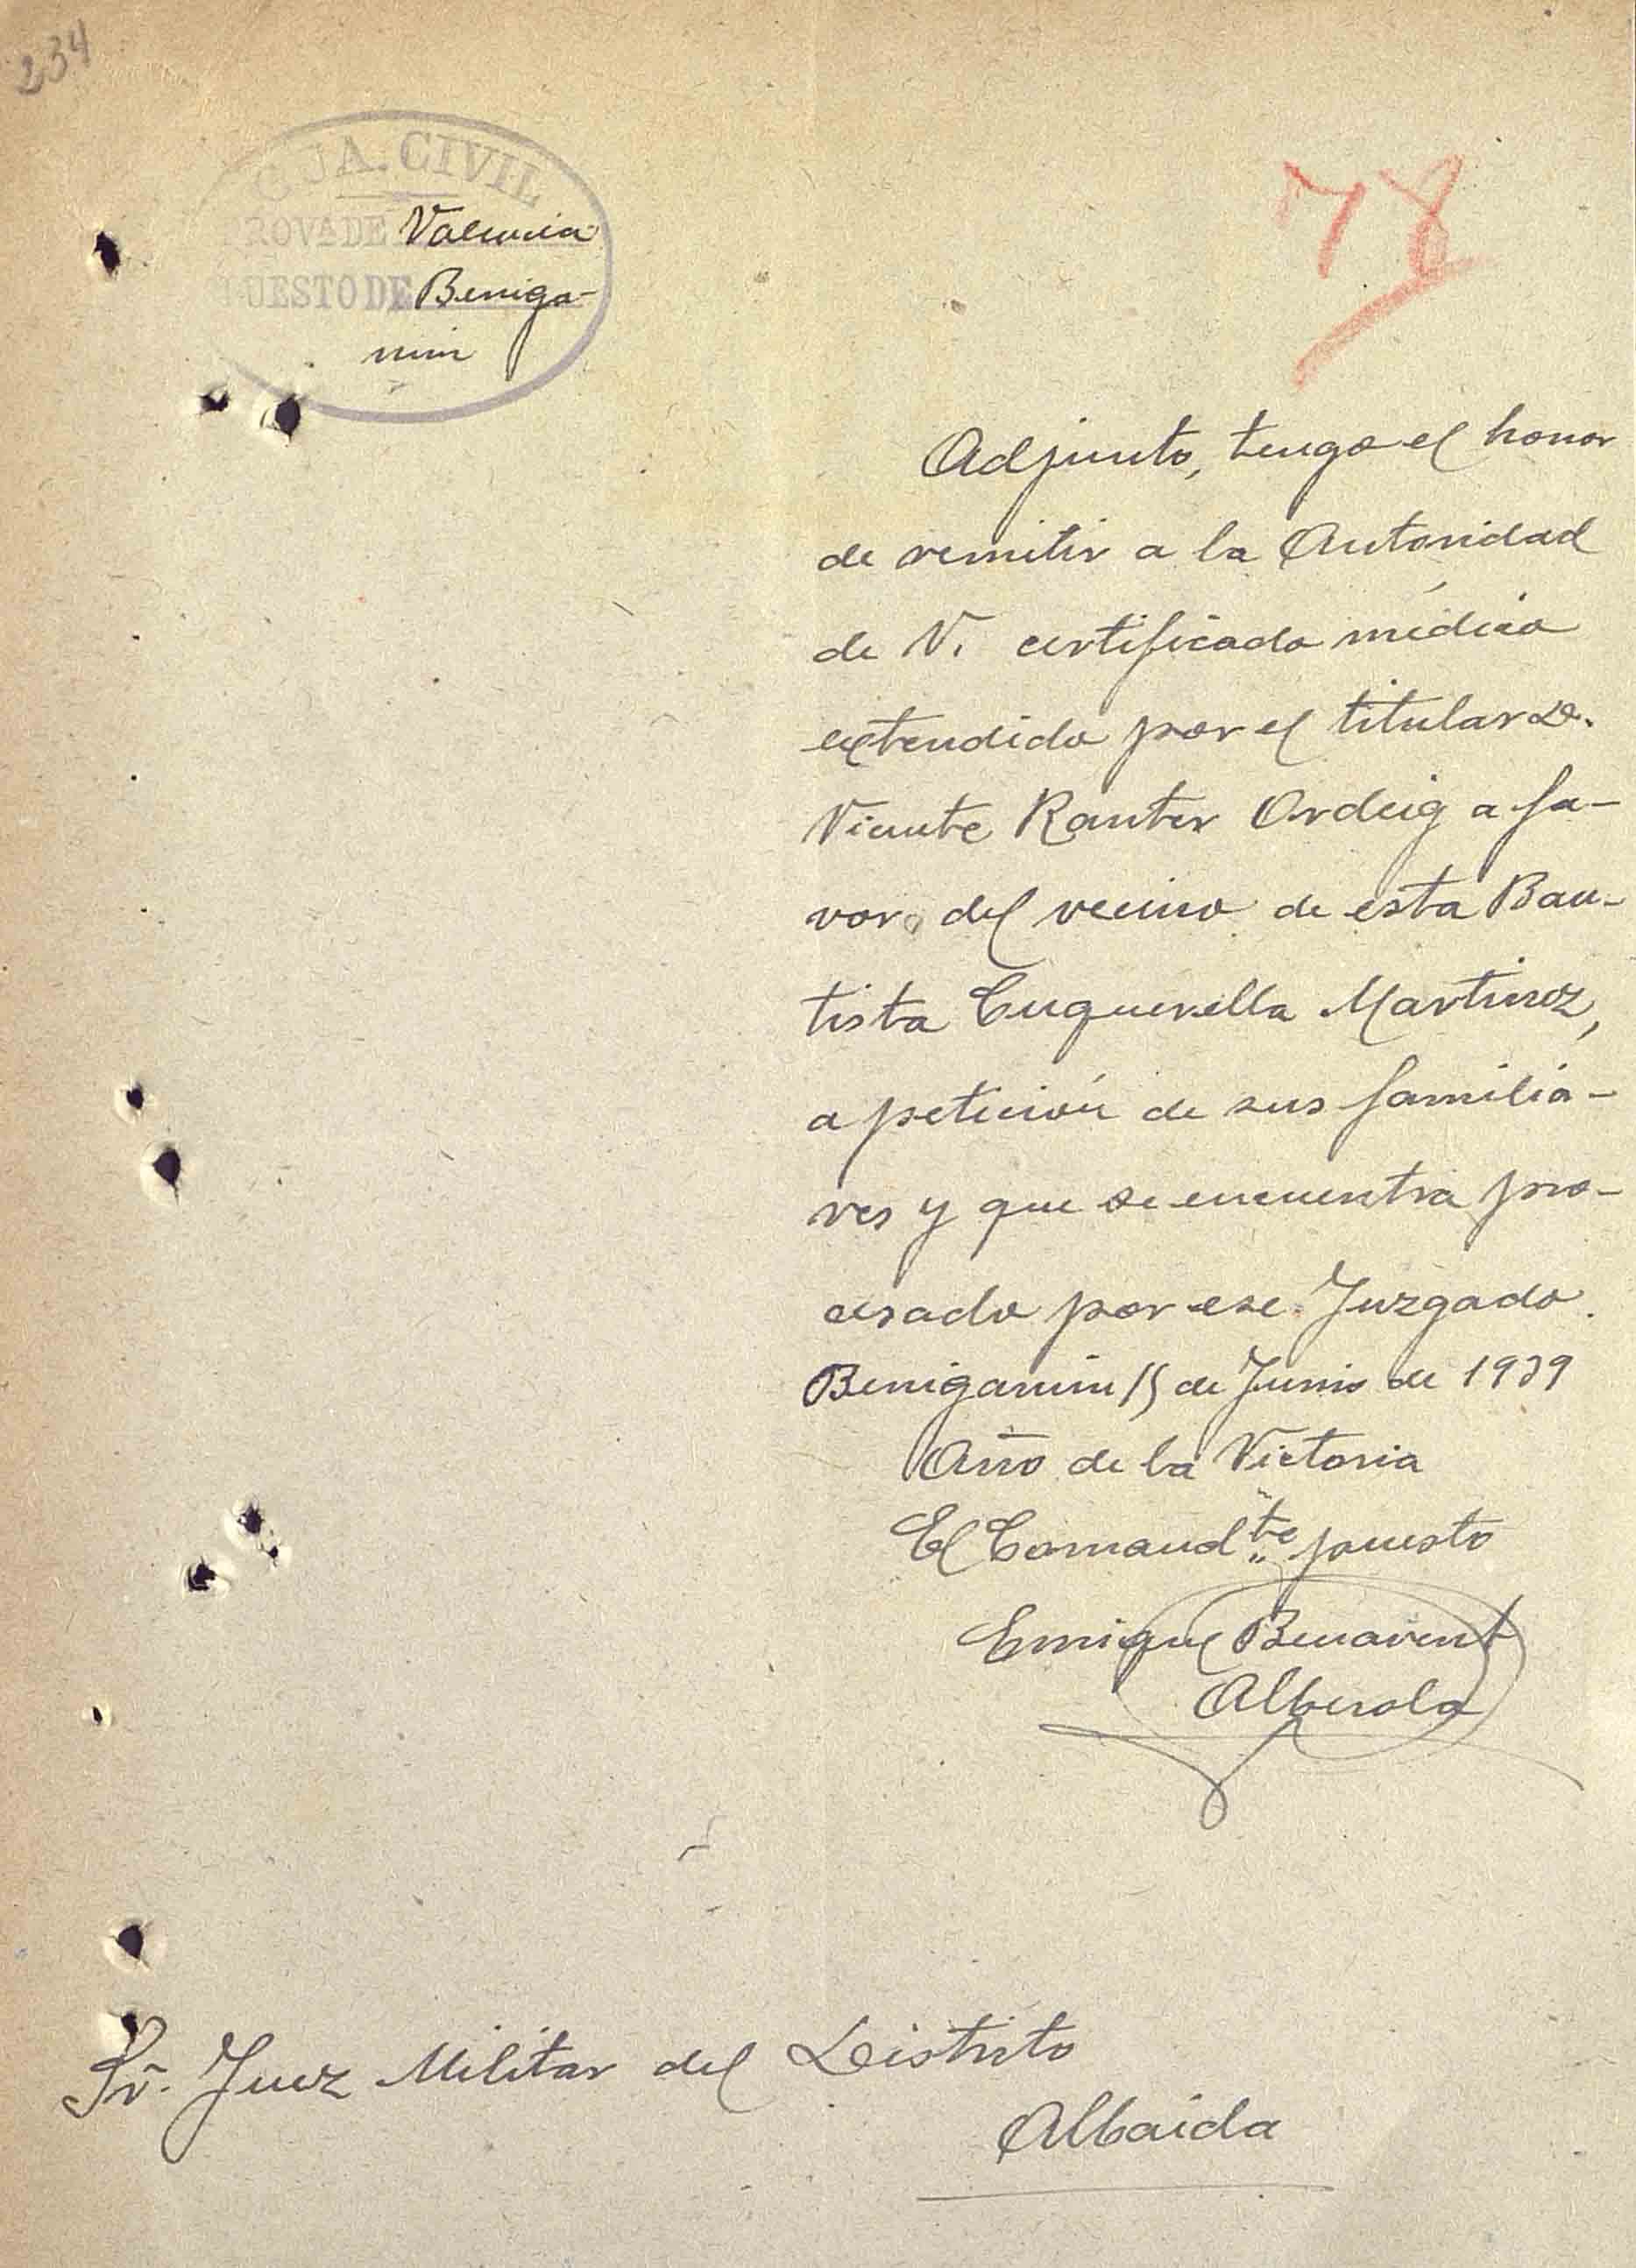 234
78
G JA. CIVIL
ROVª DE Valencia
UESTO DE Beniga-
nim
Adjunto, tengo el honor
de remitir a la Autoridad
de V. certificado médico
extendido por el titular D.
Vicente Ordeig a fa-
vor del vecino de esta Bau-
tista Cuquerella Martinez,
a petición de sus familia-
res y que se encuentra pro-
cesado por ese Juzgado.
Beniganim 15 de Junio de 1939
Año de la Victoria
El Comandte puesto
Enrique Benavent
Alberola
Sr. Juez Militar del Distrito
Albaida